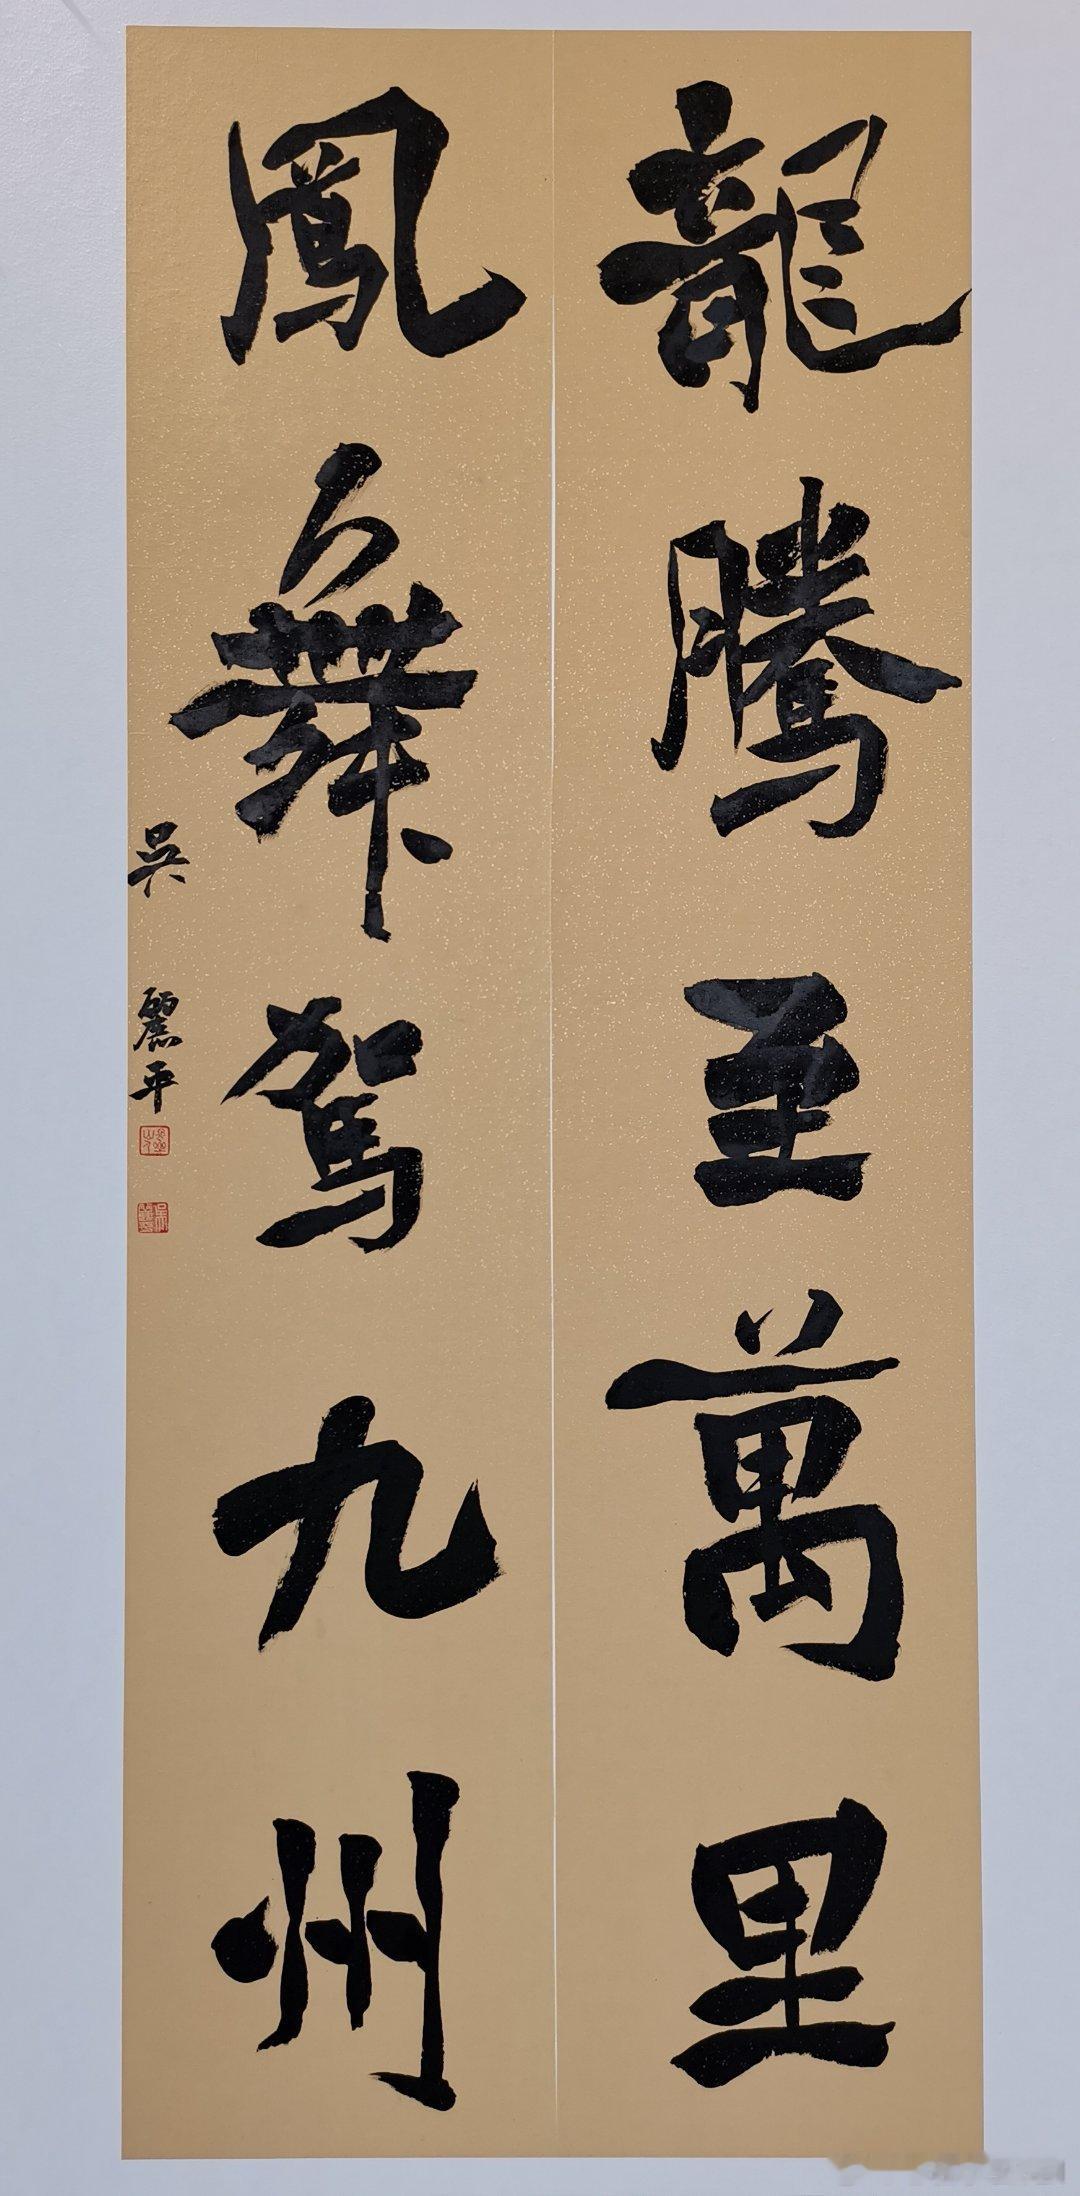 龍騰至萬里
鳳舞駕九州
吳麗平